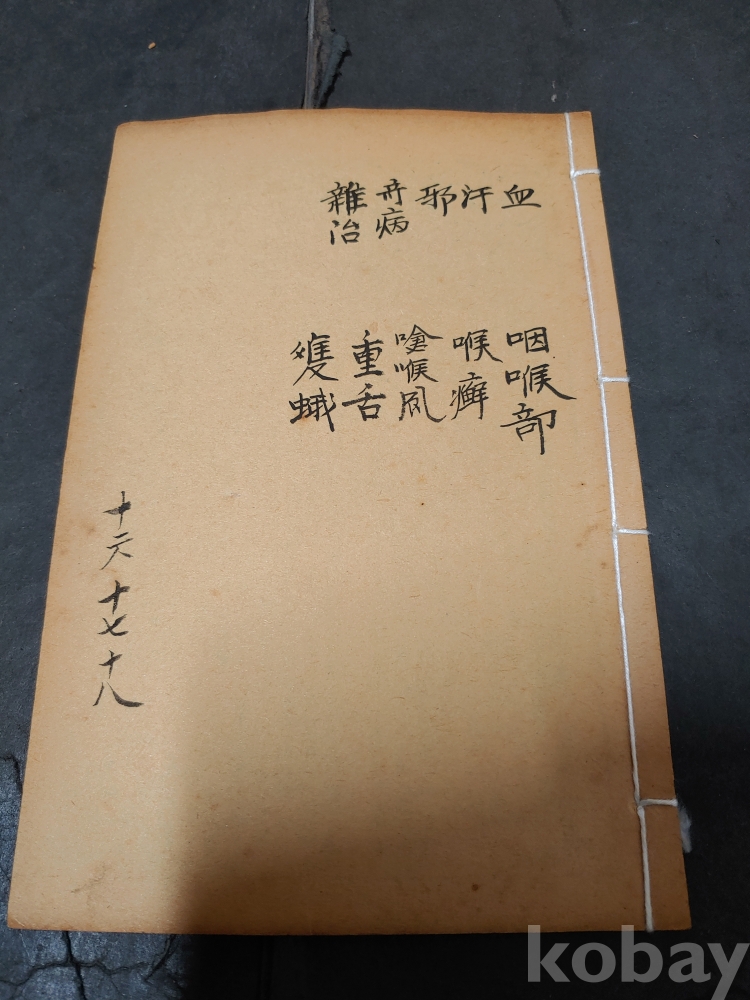 血
汗
邪
奇病
雜治
咽喉部
喉癬
喉風
重舌
雙蛾
十六 十七 十八
kobay